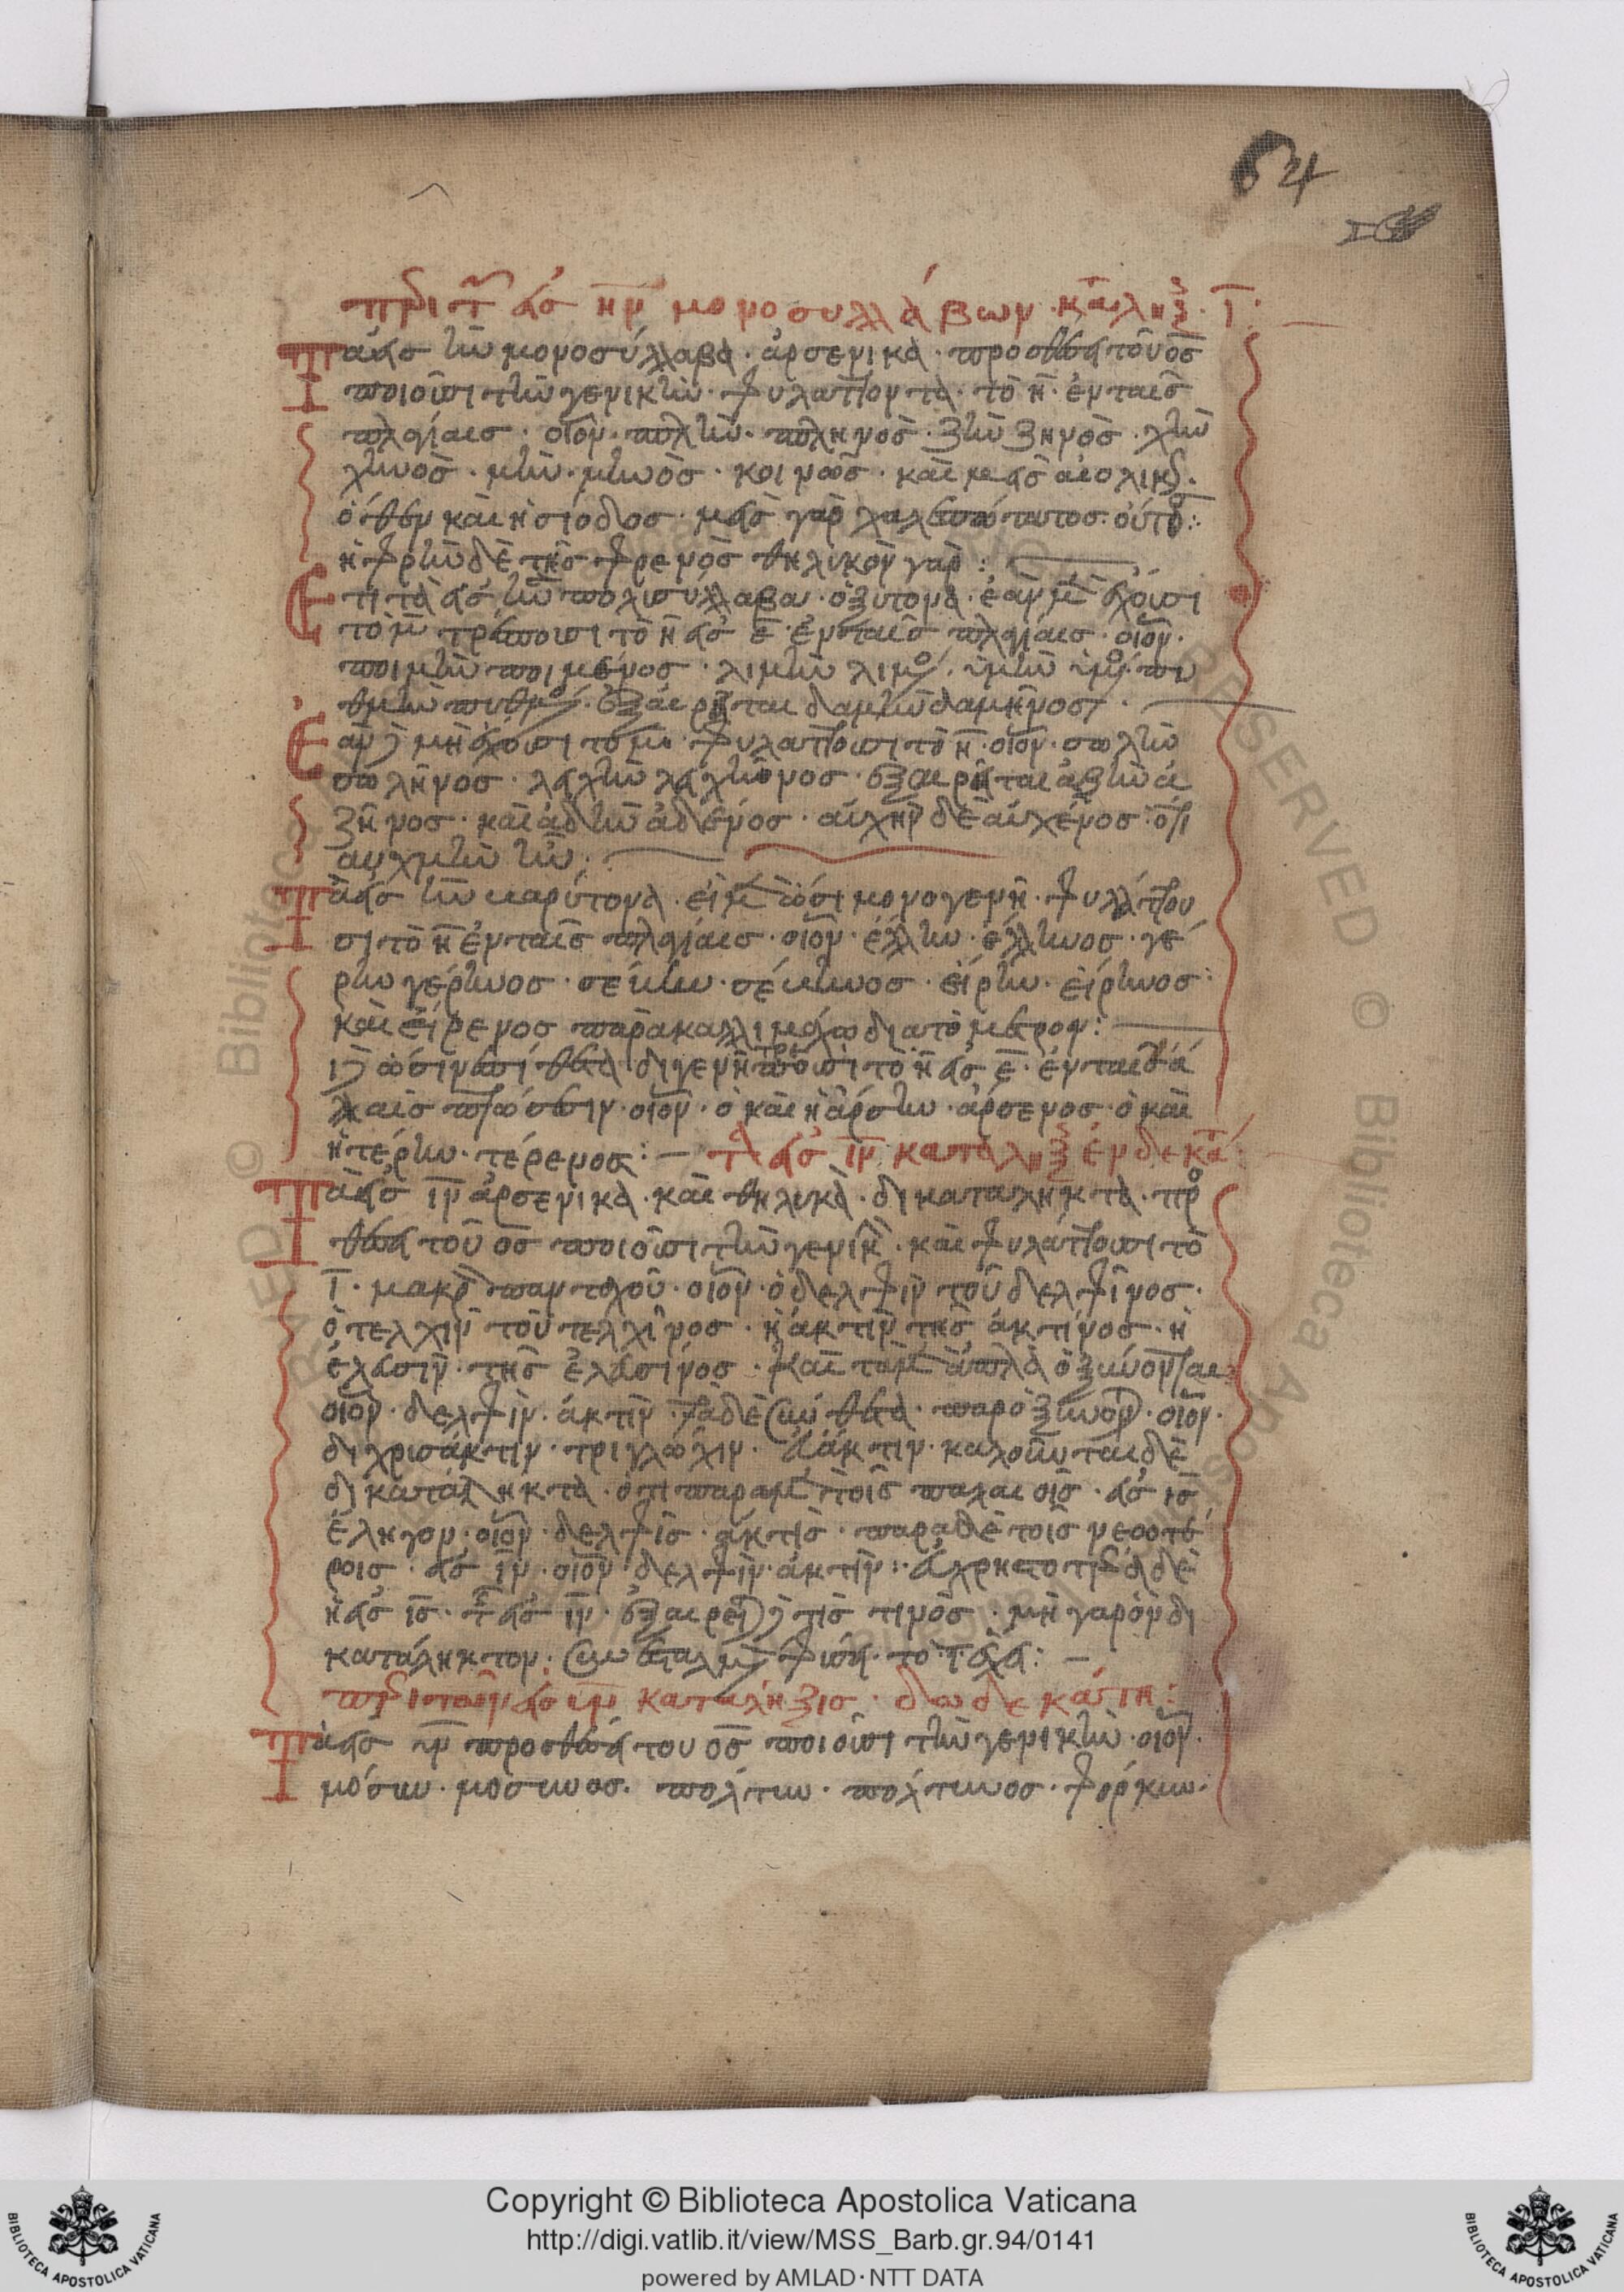 64
περὶ τῶν εἰς ην μονοσυλλάβων κατάληξ. ι.
Τὰ εἰς ην μονοσύλλαβα· ἀρσενικὰ· προσθέσει τοῦ ος
ποιοῦσι τὴν γενικὴν· φυλάττοντα· τὸ η· ἐν ταῖς
πλαγίαις· οἷον· πλὴν· πληνὸς· ζὴν ζηνὸς· χὴν
χηνὸς· μὴν· μηνὸς· κοινῶς· καὶ μεὶς αἰολικῶς·
ὅθεν καὶ ἡσίοδος· μεὶς γὰρ χαλεπώτατος οὗτος:
ἡ φρὴν δὲ τῆς φρενὸς θηλικὸν γὰρ:
Ἔτι τὰ εἰς ην πολισύλλαβα· ὀξύτονα· ἐὰν μὲν ἔχουσι
τὸ μ τρέπουσι τὸ η εἰς ε· ἐν ταῖς πλαγίαις· οἷον·
ποιμὴν ποιμένος· λιμὴν λιμένος· ὑμὴν ὑμένος· πυ
θμὴν πυθμένος· ἐξαίρηται δαμὴν δαμῆνος·
Ἐὰν δὲ μὴ ἔχουσι τὸ μ· φυλάττουσι τὸ η· οἷον· σωλὴν
σωλῆνος· λαχὴν λαχῆνος· ἐξαιρῆται ἀζὴν ἀ
ζῆνος· καὶ ἀδὴν ἀδένος· αὐχὴν δὲ αὐχένος ὅτι
αὐχμὴν ἦν:
Τὰ εἰς ην βαρύτονα· εἰ μὲν ὦσι μονογενῆ· φυλάττου
σι τὸ η ἐν ταῖς πλαγίαις· οἷον· ἕλλην· ἕλληνος· γέ
ρην γέρηνος· σέβην· σέβηνος· εἴρην· εἴρηνος:
καὶ εἴρενος παρὰ καλλιμάχω διὰ τὸ μέτρον:
εἰ δὲ ὦσιν ἐπίθετα διγενῆ τρέπουσι τὸ η εἰς ε· ἐν ταῖς πλα
γίαις πτώσεσιν· οἷον· ὁ καὶ ἡ ἄρσην· ἄρσενος· ὁ καὶ
ἡ τέρην· τέρενος:— τῶν εἰς ιν κατάληξ ἐνδεκάτη:
Τὰ εἰς ιν ἀρσενικὰ· καὶ θηλυκὰ· δικατάληκτα· προσ
θέσει τοῦ ος ποιοῦσι τὴν γενικὴν· καὶ φυλάττουσι τὸ
ι· μακρὸν πανταχοῦ· οἷον· ὁ δελφὶν τοῦ δελφῖνος·
ὁ τελχὶν τοῦ τελχῖνος· ἡ ἀκτὶν τῆς ἀκτίνος· ἡ
ἐλασὶν· τῆς ἐλασίνος· καὶ τὰ μὲν ἁπλὰ ὀξύνονται
οἷον· δελφὶν· ἀκτὶν· τὰ δὲ σύνθετα· παροξύνονται· οἷον·
διχρισάκτιν· τριγλώχιν· λάκτιν· καλοῦνται δὲ
δικατάληκτα· ὅτι παρὰ μὲν τοῖς παλαιοῖς· εἰς ις
ἔληγον· οἷον· δελφὶς· ἀκτὶς· παρὰ δὲ τοῖς νεοτέ
ροις· εἰς ιν· οἷον δελφὶν· ἀκτὶν:
ἡ εἰς ις· τῆς εἰς ιν· ἐξαιρεῖται δὲ τὶς τινὸς· μὴ γὰρ ὂν δι
κατάληκτον· συνεσταλμένον φύσει· τὸ ι ἔχει:—
περὶ τῶν εἰς υν κατάληξις· δωδεκάτη:
Τὰ εἰς υν προσθέσει του ος ποιοῦσι τὴν γενικὴν· οἷον·
μόσυν· μόσυνος· πόλτυν· πόλτυνος· φόρκυν·
Copyright © Biblioteca Apostolica Vaticana
http://digi.vatlib.it/view/MSS_Barb.gr.94/0141
powered by AMLAD·NTT DATA